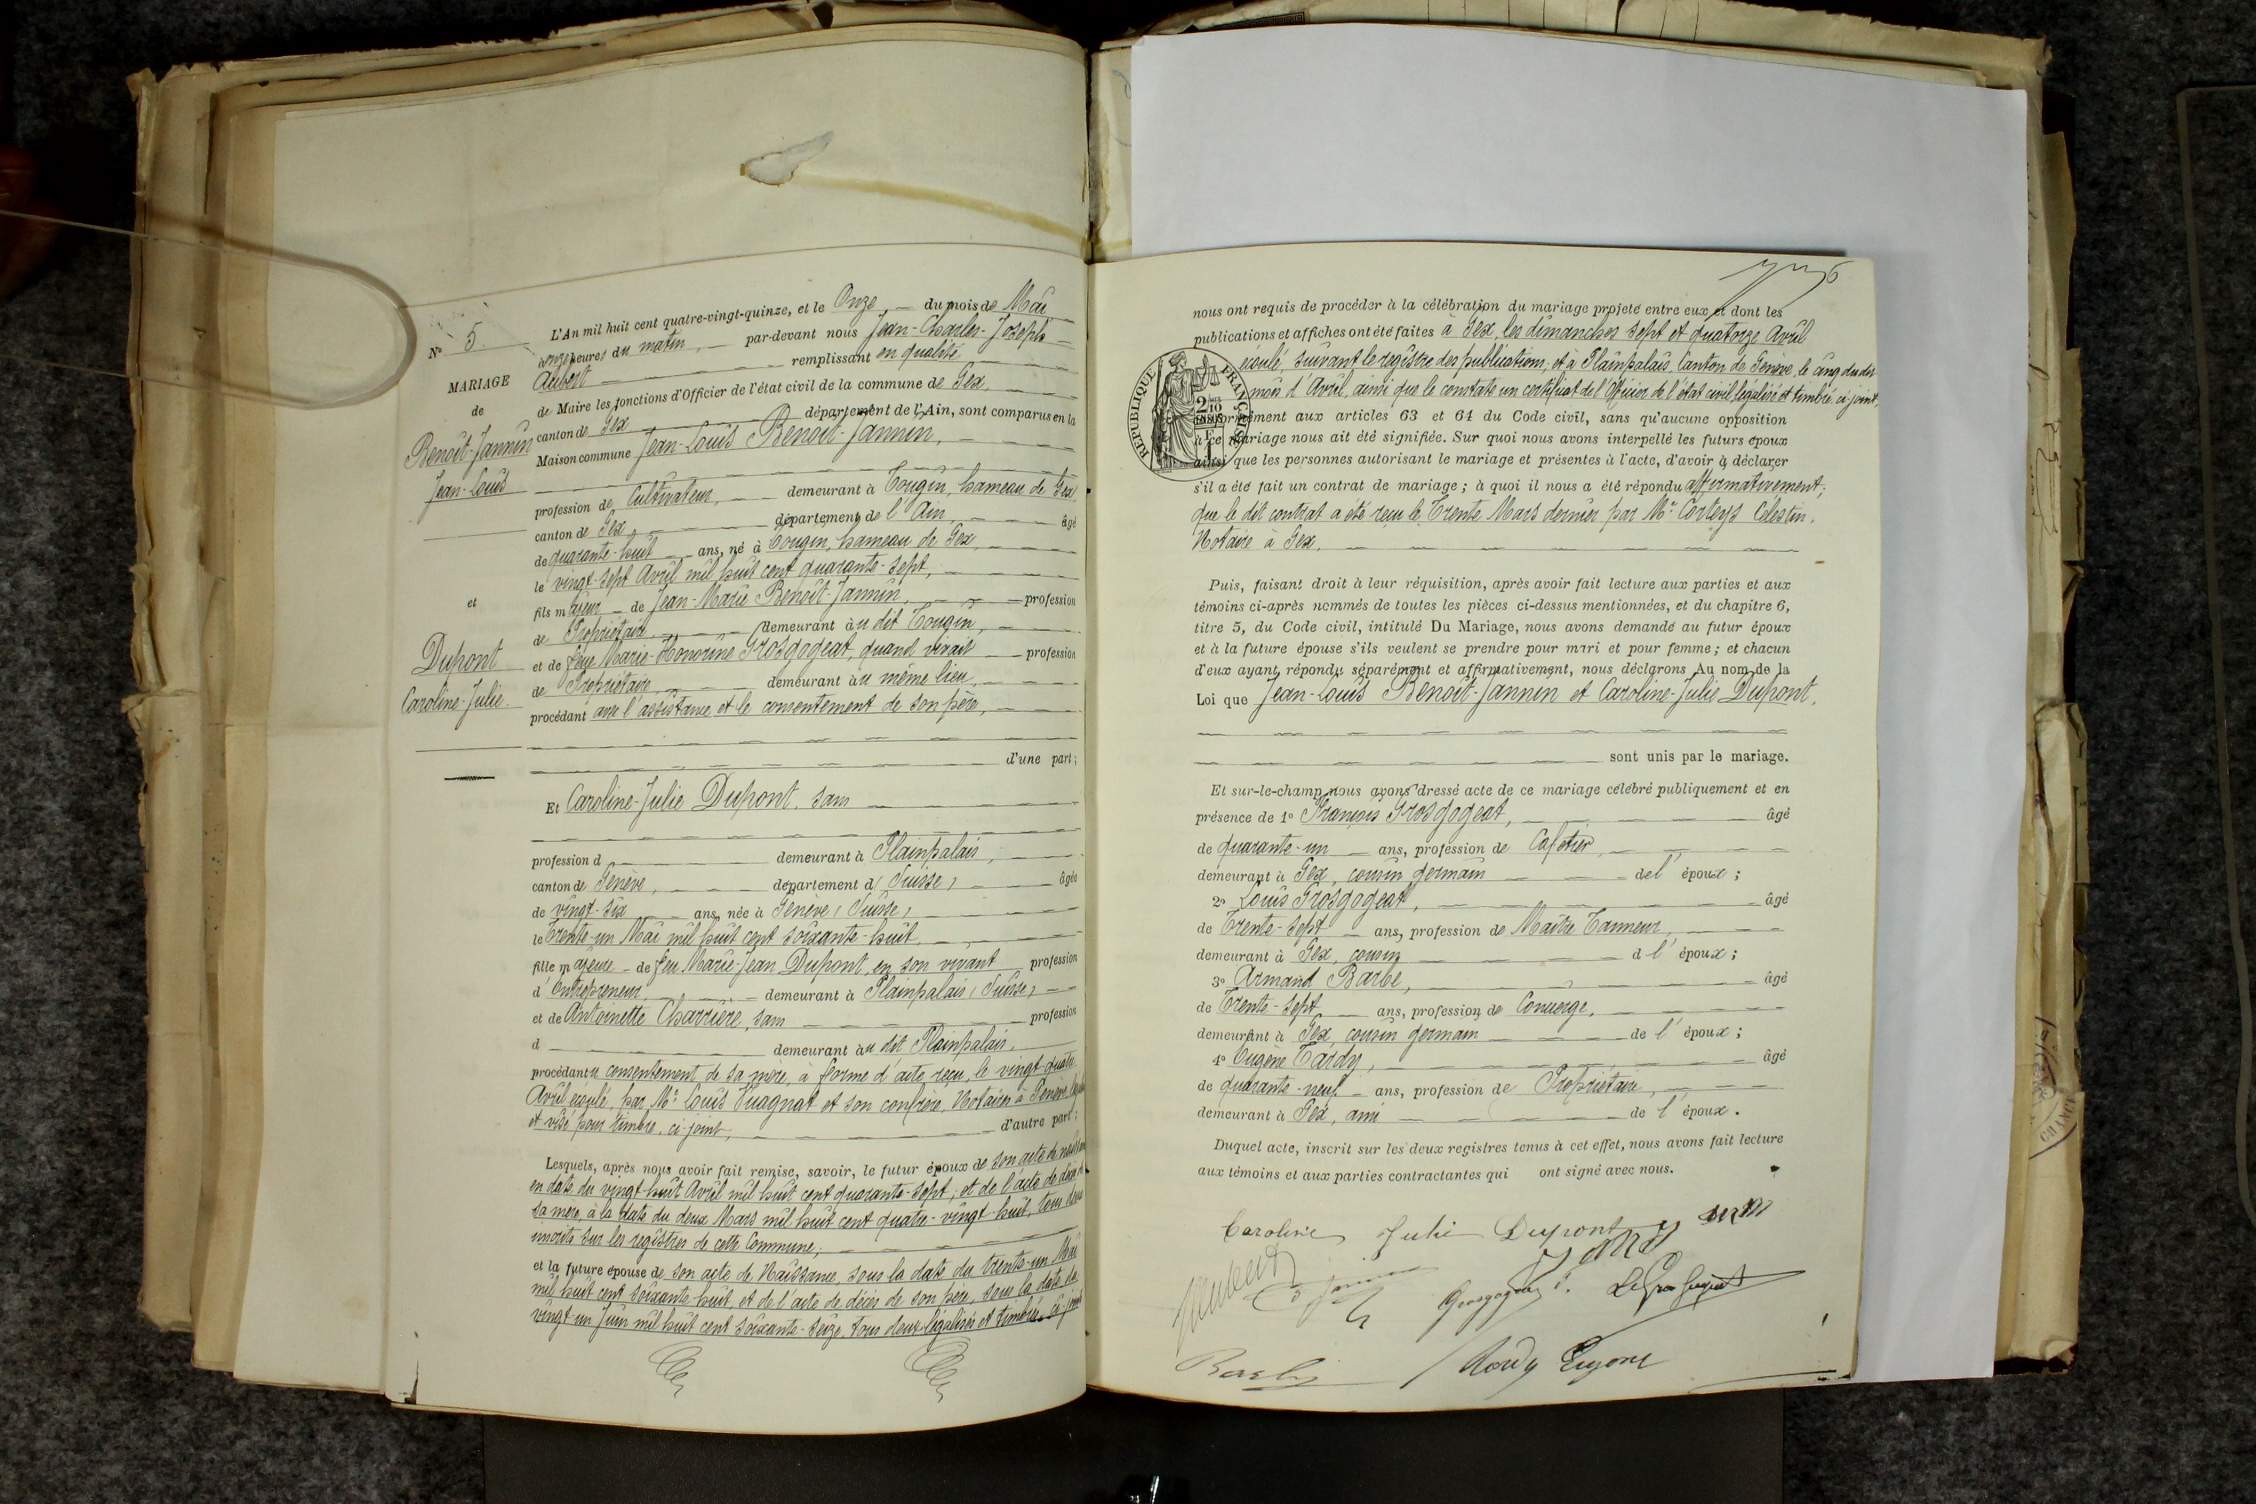 N° 5
MARIAGE
de
Benoît-Jannin
Jean-Louis
et
Dupont
Caroline-Julie
L'An mil huit cent quatre-vingt-quinze, et le Onze du mois de Mai
à onze heures du matin, par-devant nous Jean-Charles-Joseph
Aubert remplissant en qualité
de Maire les fonctions d'Officier de l'état civil de la commune de Gex,
canton de Gex département de l'Ain, sont comparus en la
Maison commune Jean-Louis Benoît-Jannin,
profession de Cultivateur, demeurant à Tougin, hameau de Gex,
canton de Gex département de l'Ain, âgé
de quarante-huit ans, né à Tougin, hameau de Gex,
le vingt-sept Avril mil huit cent quarante-sept,
fils majeur de Jean-Marie Benoît-Jannin, profession
de Propriétaire demeurant au dit Tougin,
et de feue Marie-Honorine Grosgogeat, quand vivait profession
de Propriétaire, demeurant au même lieu,
procédant avec l'assistance et le consentement de son père,
d'une part;
Et Caroline-Julie Dupont, sans
profession d demeurant à Plainpalais,
canton de Genève, département d (Suisse) âgée
de vingt-six ans, née à Genève (Suisse)
le Trente-un Mai mil huit cent soixante-huit
fille majeure de feu Marie-Jean Dupont, en son vivant profession
d'Entrepreneur, demeurant à Plainpalais (Suisse)
et de Antoinette Charrière, sans profession
d demeurant au dit Plainpalais,
procédant du consentement de sa mère, à forme d'acte reçu, le vingt-quatre
Avril écoulé, par Me Louis Vuagnat et son confrère, Notaires à Genève,
et visé pour timbre, ci-joint, d'autre part;
Lesquels, après nous avoir fait remise, savoir, le futur époux de son acte de naissance
en date du vingt-huit Avril mil huit cent quarante-sept, et de l'acte de décès de
sa mère, à la date du deux Mars mil huit cent quatre-vingt huit, tous deux
inscrits sur les registres de cette Commune;
et la future épouse de son acte de Naissance, sous la date du trente-un Mai
mil huit cent soixante-huit, et de l'acte de décès de son père, sous la date du
vingt-un Juin mil huit cent soixante-seize, tous deux légalisés et timbrés, ci-joints
nous ont requis de procéder à la célébration du mariage projeté entre eux et dont les
publications et affiches ont été faites à Gex, les dimanches sept et quatorze Avril
écoulé, suivant le registre des publications; et à Plainpalais, Canton de Genève, le cinq du dit
mois d'Avril, ainsi que le constate un certificat de l'Officier de l'état civil, légalisé et timbré, ci-joint,
RÉPUBLIQUE FRANÇAISE
conformément aux articles 63 et 64 du Code civil, sans qu'aucune opposition
à ce mariage nous ait été signifiée. Sur quoi nous avons interpellé les futurs époux
ainsi que les personnes autorisant le mariage et présentes à l'acte, d'avoir à déclarer
s'il a été fait un contrat de mariage; à quoi il nous a été répondu affirmativement;
que le dit contrat a été reçu le Trente Mars dernier par Me Corteys Célestin,
Notaire à Gex.
Puis, faisant droit à leur réquisition, après avoir fait lecture aux parties et aux
témoins ci-après nommés de toutes les pièces ci-dessus mentionnées, et du chapitre 6,
titre 5, du Code civil, intitulé Du Mariage, nous avons demandé au futur époux
et à la future épouse s'ils veulent se prendre pour mari et pour femme; et chacun
d'eux ayant répondu séparément et affirmativement, nous déclarons Au nom de la
Loi que Jean-Louis Benoît-Jannin et Caroline-Julie Dupont,
sont unis par le mariage.
Et sur-le-champ nous avons dressé acte de ce mariage célébré publiquement et en
présence de 1° François Grosgogeat, âgé
de quarante-un ans, profession de Cafetier,
demeurant à Gex, cousin germain de l'époux;
2° Louis Grosgogeat, âgé
de Trente-sept ans, profession de Maître Tanneur,
demeurant à Gex, cousin d l'époux;
3° Armand Barbe, âgé
de Trente-sept ans, profession de Concierge,
demeurant à Gex, cousin germain de l'époux;
4° Eugène Tardy, âgé
de quarante-neuf ans, profession de Propriétaire,
demeurant à Gex, ami de l'époux.
Duquel acte, inscrit sur les deux registres tenus à cet effet, nous avons fait lecture
aux témoins et aux parties contractantes qui ont signé avec nous.
Caroline Julie Dupont
Tardy Eugène